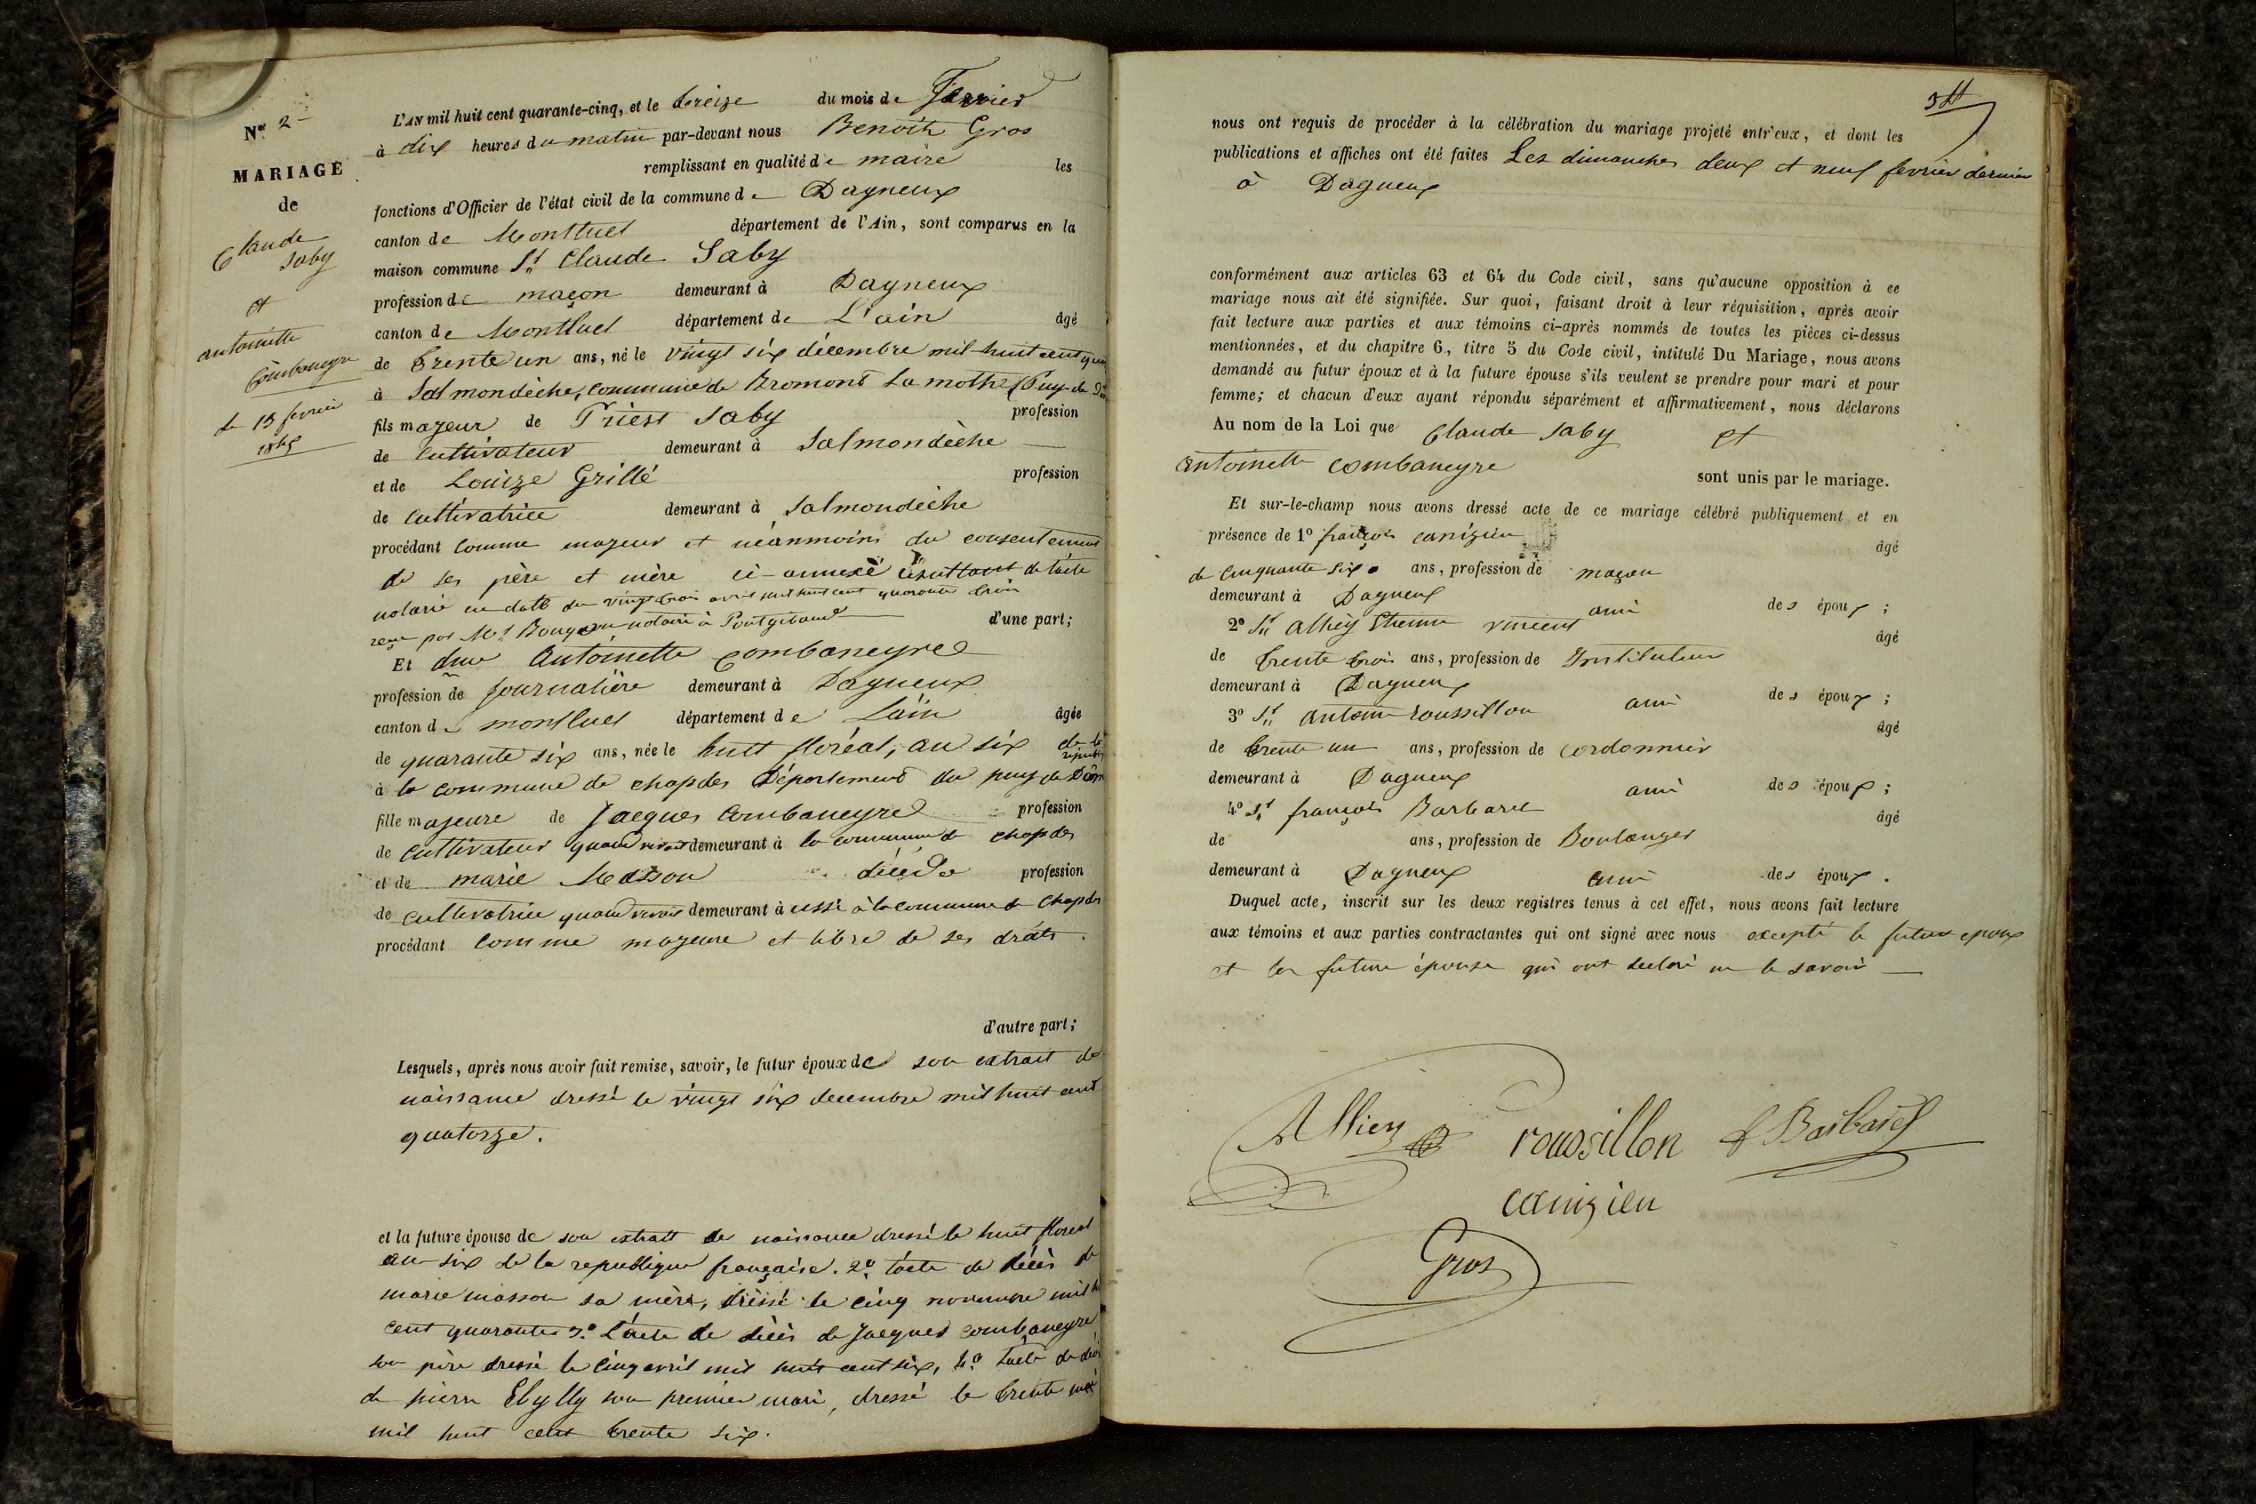 N° 2
MARIAGE
de
Claude
Saby
et
antoinette
Combaneyre
du 13 fevrier
1845
L'AN mil huit cent quarante-cinq, et le treize du mois de Fevrier
à dix heures du matin par-devant nous Benoith Gros
remplissant en qualité de maire les
fonctions d'Officier de l'état civil de la commune de Dagneux
canton de Montluel département de l'Ain, sont comparus en la
maison commune Sr Claude Saby
profession de maçon demeurant à Dagneux
canton de Montluel département de L'ain âgé
de trente un ans, né le vingt six décembre mil huit cent
à Salmondèche, commune de Bromont La mothe (Puy-de-
fils majeur de Priest Saby profession
de cultivateur demeurant à Salmondèche
et de Louize Grillé profession
de cultivatrice demeurant à Salmondèche
procédant comme majeur et néanmoins du consentement
de ses père et mère ci-annexé résultant de l'acte
notarié en date du vingt trois avril mil huit cent quarante trois
reçu par Me notaire à Pontgibaud d'une part;
Et dme Antoinette Combaneyre
profession de journalière demeurant à Dagneux
canton de montluel département de L'ain âgée
de quarante six ans, née le huit floréal, an six de la
à la commune de chapdes Département du puy de Dôm
fille majeure de Jacques Combaneyre profession
de cultivateur quand vivait demeurant à la commune de chapdes
et de marie Masson décédé profession
de cultivatrice quand vivait demeurant à ussi à la commune de chapdes
procédant comme majeure et libre de ses droits.
d'autre part;
Lesquels, après nous avoir fait remise, savoir, le futur époux de son extrait de
naissance dressé le vingt six decembre mil huit cent
quatorze.
et la future épouse de son extrait de naissance dressé le huit floreal
an six de la republique française. 2° l'acte de décès de
marie masson sa mère, dressé le cinq novembre mil h
cent quarante 3° L'acte de décès de Jacques combaneyre
son père dressé le cinq avril mil huit cent six, 4° l'acte de décè
de pierre son premier mari, dressé le trente mai
mil huit cent trente six.
nous ont requis de procéder à la célébration du mariage projeté entr'eux, et dont les
publications et affiches ont été faites Les dimanches deux et neuf fevrier dernier
à Dagneux
conformément aux articles 63 et 64 du Code civil, sans qu'aucune opposition à ce
mariage nous ait été signifiée. Sur quoi, faisant droit à leur réquisition, après avoir
fait lecture aux parties et aux témoins ci-après nommés de toutes les pièces ci-dessus
mentionnées, et du chapitre 6., titre 5 du Code civil, intitulé Du Mariage, nous avons
demandé au futur époux et à la future épouse s'ils veulent se prendre pour mari et pour
femme; et chacun d'eux ayant répondu séparément et affirmativement, nous déclarons
Au nom de la Loi que Claude Saby et
antoinette combaneyre sont unis par le mariage.
Et sur-le-champ nous avons dressé acte de ce mariage célébré publiquement et en
présence de 1° françois canizien âgé
de cinquante six ans, profession de maçon
demeurant à Dagneux ami des époux;
2° Sr Alhiey Etienne vincent âgé
de trente trois ans, profession de Instituteur
demeurant à Dagneux ami des époux;
3° Sr antoine roussillon âgé
de trente un ans, profession de cordonnier
demeurant à Dagneux ami des époux;
4° Sr françois Barbaret âgé
de ans, profession de Boulanger
demeurant à Dagneux ami des époux.
Duquel acte, inscrit sur les deux registres tenus à cet effet, nous avons fait lecture
aux témoins et aux parties contractantes qui ont signé avec nous excepté le futur epoux
et la future épouse qui ont declaré ne le savoir
roussillon
Barbaret
canizien
Gros